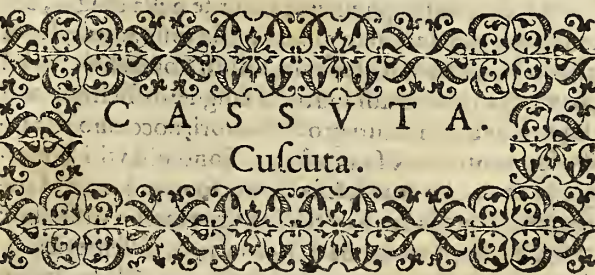 C A S S V T A.
Cuſcuta.